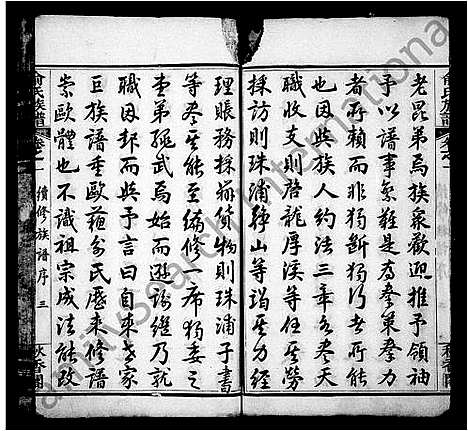 俞氏族譜
卷之一
老昆弟焉族衆歡迎推予領袖
予以譜事繁難是為羣策羣力
者所賴而非獨斷獨行者
也因與族人約法三章各盡天
職收支則啓龍厚溪等任其勞
採訪則珠浦靜山等竭其力
理賬務採辦什物則珠浦子書
等盡其能至編修一席獨委之
奎弟繩武焉始而遜謝繼乃就
職因卸而與予言曰自來世家
巨族譜重歐蘇俞氏歷來修譜
崇歐體也不識祖宗成法能改
俞氏族譜
卷之一
續修族譜序
三
秋香閣
FamilySearch International